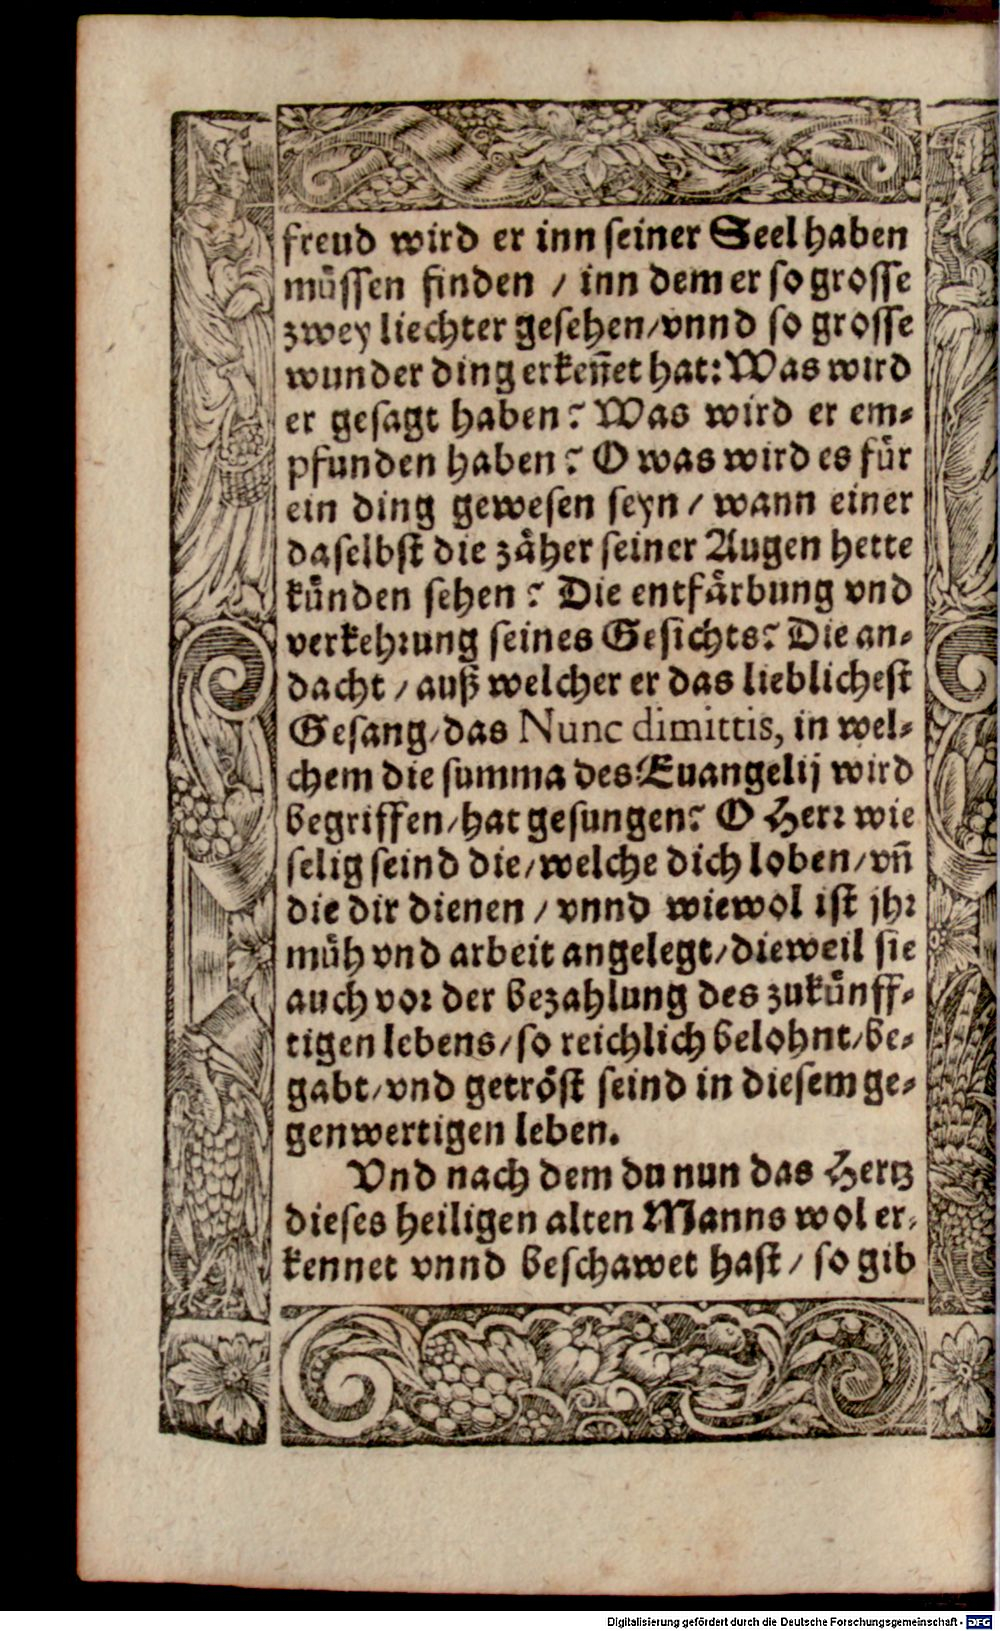 freud wird er inn seiner Seel haben
müssen finden / inn dem er so grosse
zwey liechter gesehen/vnnd so grosse
wunder ding erkeñet hat: Was wird
er gesagt haben? Was wird er em-
pfunden haben? O was wird es für
ein ding gewesen seyn / wann einer
daselbst die zäher seiner Augen hette
künden sehen? Die entfärbung vnd
verkehrung seines Gesichts? Die an-
dacht / auß welcher er das lieblichest
Gesang/das Nunc dimittis, in wel-
chem die summa des Euangelij wird
begriffen/hat gesungen? O Herr wie
selig seind die/welche dich loben/vñ
die dir dienen / vnnd wiewol ist jhr
müh vnd arbeit angelegt/dieweil sie
auch vor der bezahlung des zukünff-
tigen lebens/so reichlich belohnt/be-
gabt/vnd getröst seind in diesem ge-
genwertigen leben.
Vnd nach dem du nun das Hertz
dieses heiligen alten Manns wol er-
kennet vnnd beschawet hast / so gib
Digitalisierung gefördert durch die Deutsche Forschungsgemeinschaft - DFG